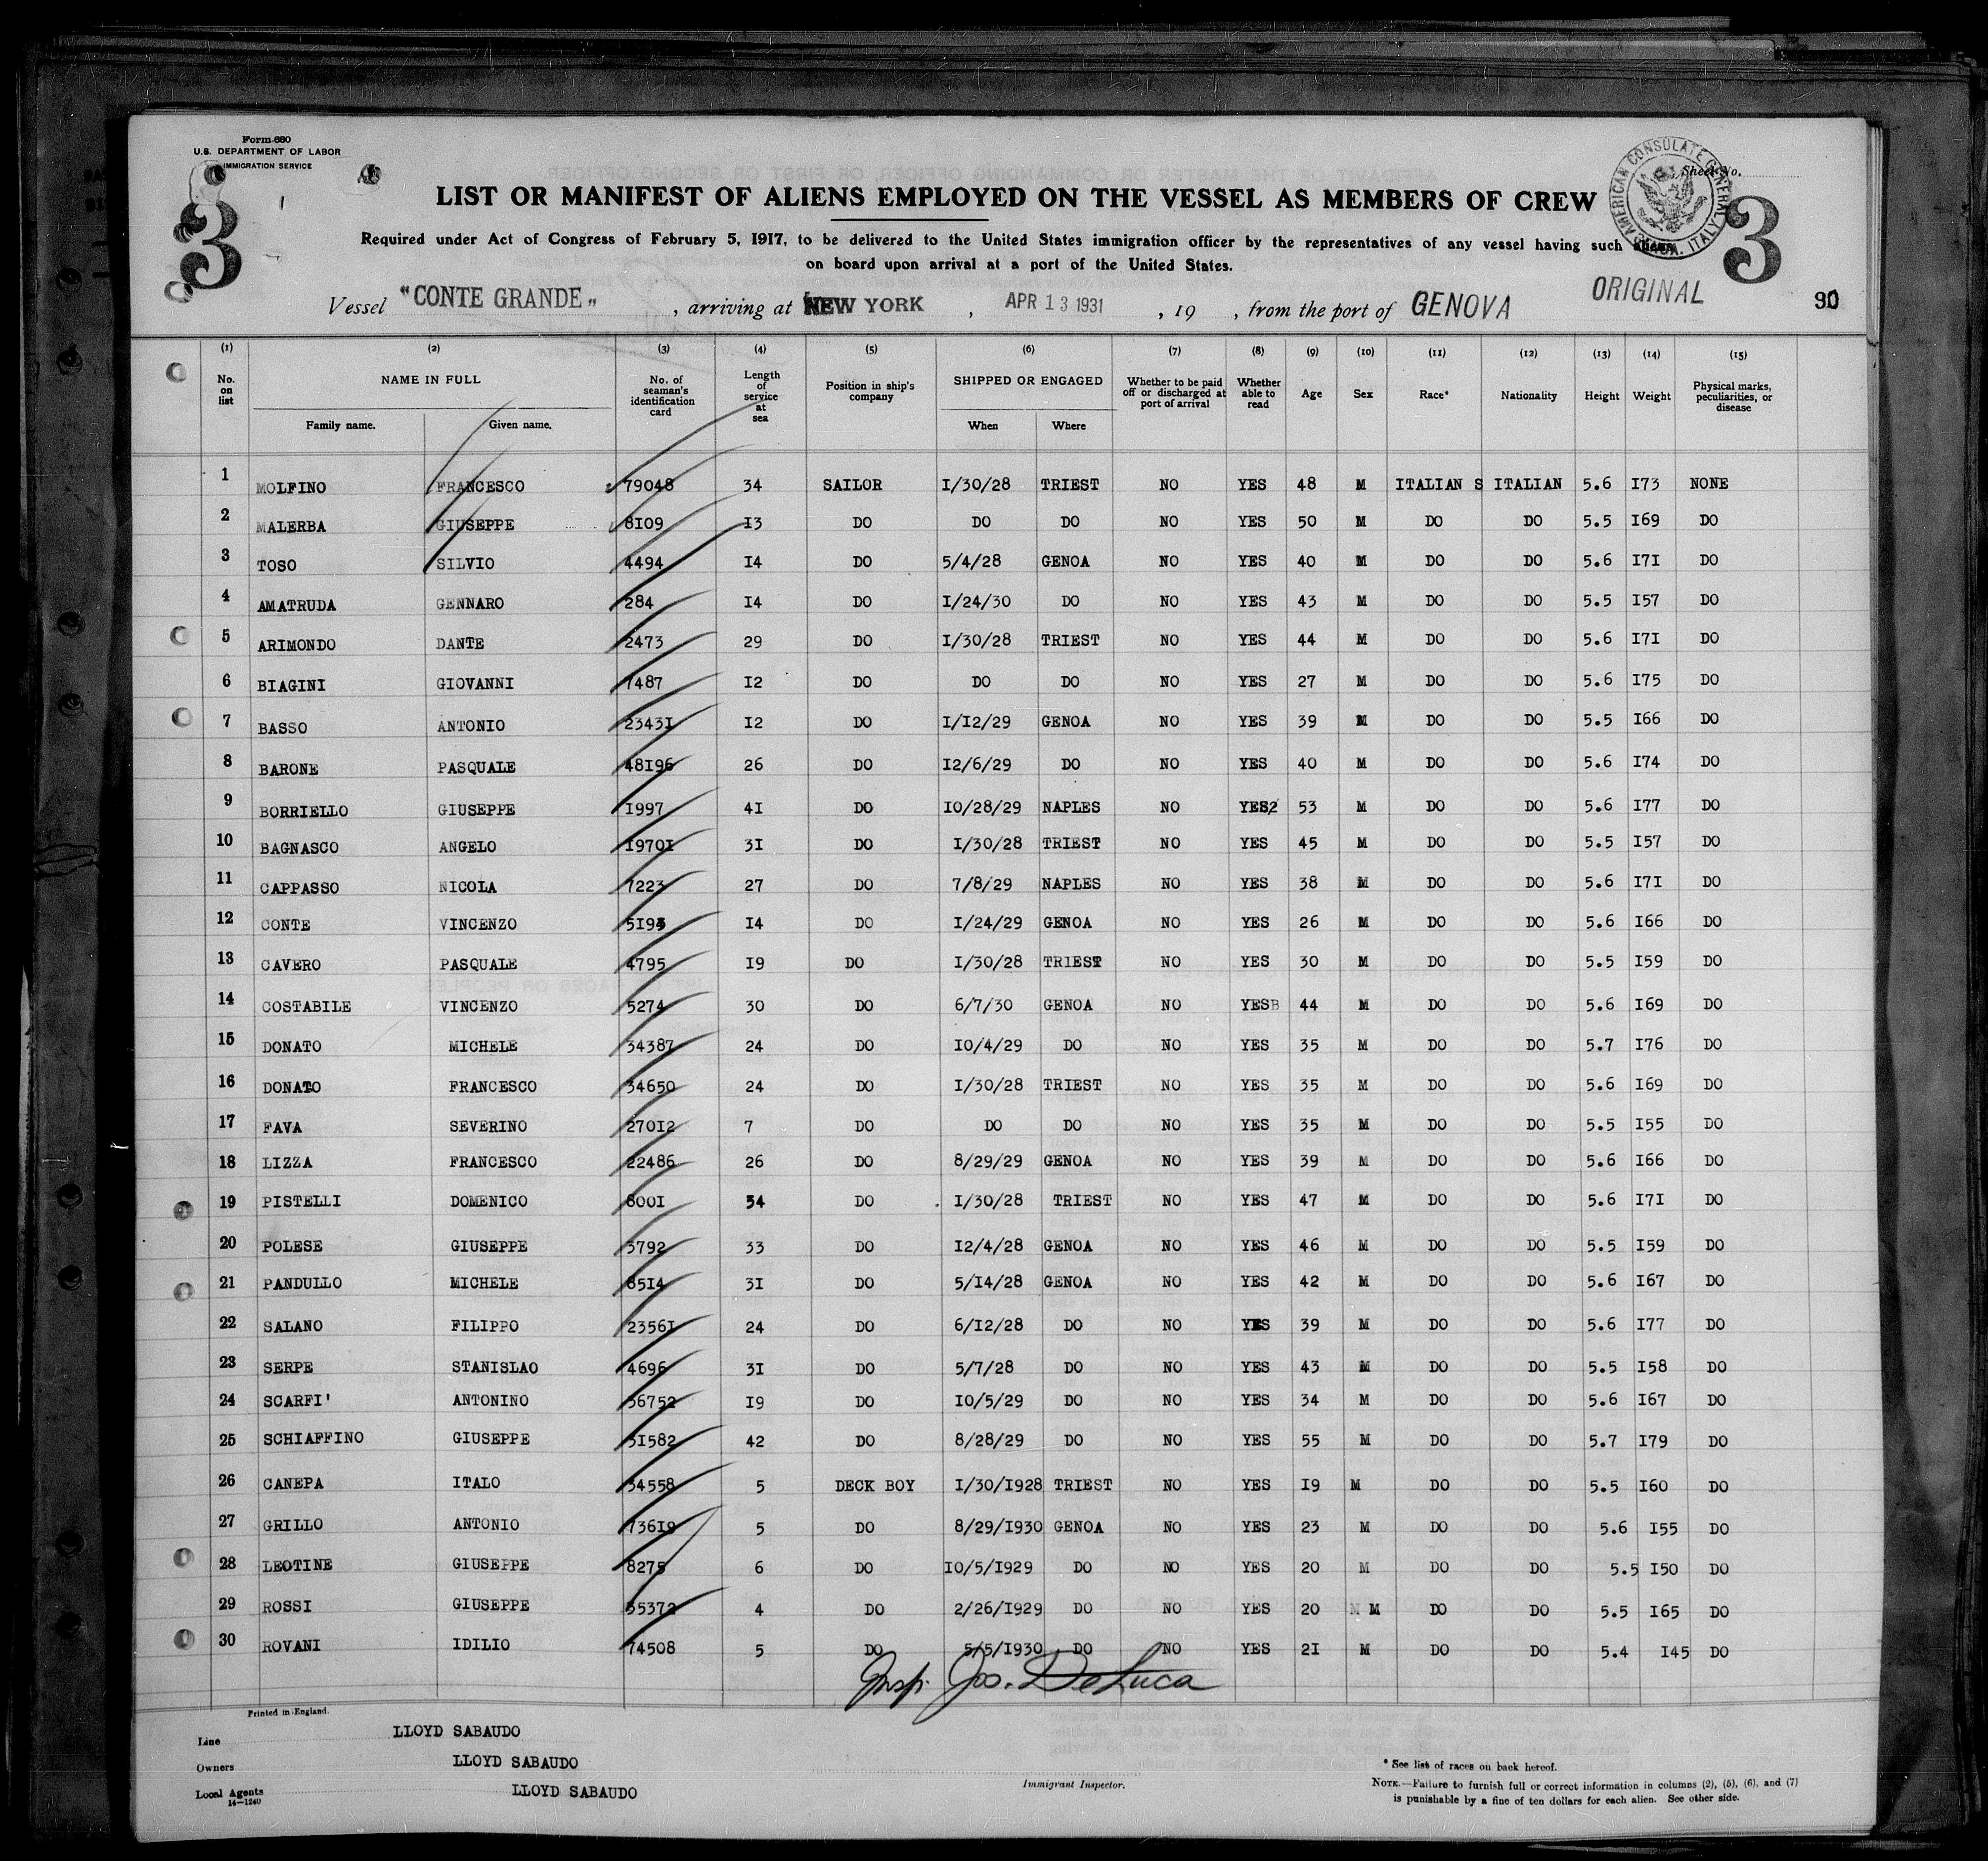 Form 680
U.S. DEPARTMENT OF LABOR
IMMIGRATION SERVICE
Sheet No.
AMERICAN CONSULATE GENERAL
GENOA. ITALY
3
3
LIST OR MANIFEST OF ALIENS EMPLOYED ON THE VESSEL AS MEMBERS OF CREW
Required under Act of Congress of February 5, 1917, to be delivered to the United States immigration officer by the representatives of any vessel having such aliens
on board upon arrival at a port of the United States.
ORIGINAL
90
Vessel "CONTE GRANDE" , arriving at NEW YORK , APR 13 1931 , 19 , from the port of GENOVA
(1) (2) (3) (4) (5) (6) (7) (8) (9) (10) (11) (12) (13) (14) (15)
No. on list NAME IN FULL No. of seaman's identification card Length of service at sea Position in ship's company SHIPPED OR ENGAGED Whether to be paid off or discharged at port of arrival Whether able to read Age Sex Race* Nationality Height Weight Physical marks, peculiarities, or disease
Family name. Given name. When Where
1 MOLFINO FRANCESCO 79048 34 SAILOR 1/30/28 TRIEST NO YES 48 M ITALIAN S ITALIAN 5.6 173 NONE
2 MALERBA GIUSEPPE 8109 13 DO DO DO NO YES 50 M DO DO 5.5 169 DO
3 TOSO SILVIO 4494 14 DO 5/4/28 GENOA NO YES 40 M DO DO 5.6 171 DO
4 AMATRUDA GENNARO 284 14 DO 1/24/30 DO NO YES 43 M DO DO 5.5 157 DO
5 ARIMONDO DANTE 2473 29 DO 1/30/28 TRIEST NO YES 44 M DO DO 5.6 171 DO
6 BIAGINI GIOVANNI 7487 12 DO DO DO NO YES 27 M DO DO 5.6 175 DO
7 BASSO ANTONIO 23431 12 DO 1/12/29 GENOA NO YES 39 M DO DO 5.5 166 DO
8 BARONE PASQUALE 48196 26 DO 12/6/29 DO NO YES 40 M DO DO 5.6 174 DO
9 BORRIELLO GIUSEPPE 1997 41 DO 10/28/29 NAPLES NO YES2 53 M DO DO 5.6 177 DO
10 BAGNASCO ANGELO 19701 31 DO 1/30/28 TRIEST NO YES 45 M DO DO 5.5 157 DO
11 CAPPASSO NICOLA 7223 27 DO 7/8/29 NAPLES NO YES 38 M DO DO 5.6 171 DO
12 CONTE VINCENZO 5193 14 DO 1/24/29 GENOA NO YES 26 M DO DO 5.6 166 DO
13 CAVERO PASQUALE 4795 19 DO 1/30/28 TRIEST NO YES 30 M DO DO 5.5 159 DO
14 COSTABILE VINCENZO 5274 30 DO 6/7/30 GENOA NO YESB 44 M DO DO 5.6 169 DO
15 DONATO MICHELE 34387 24 DO 10/4/29 DO NO YES 35 M DO DO 5.7 176 DO
16 DONATO FRANCESCO 34650 24 DO 1/30/28 TRIEST NO YES 35 M DO DO 5.6 169 DO
17 FAVA SEVERINO 27012 7 DO DO DO NO YES 35 M DO DO 5.5 155 DO
18 LIZZA FRANCESCO 22486 26 DO 8/29/29 GENOA NO YES 39 M DO DO 5.6 166 DO
19 PISTELLI DOMENICO 8001 34 DO 1/30/28 TRIEST NO YES 47 M DO DO 5.6 171 DO
20 POLESE GIUSEPPE 3792 33 DO 12/4/28 GENOA NO YES 46 M DO DO 5.5 159 DO
21 PANDULLO MICHELE 8514 31 DO 5/14/28 GENOA NO YES 42 M DO DO 5.6 167 DO
22 SALANO FILIPPO 23561 24 DO 6/12/28 DO NO YES 39 M DO DO 5.6 177 DO
23 SERPE STANISLAO 4696 31 DO 5/7/28 DO NO YES 43 M DO DO 5.5 158 DO
24 SCARFI' ANTONINO 36752 19 DO 10/5/29 DO NO YES 34 M DO DO 5.6 167 DO
25 SCHIAFFINO GIUSEPPE 31582 42 DO 8/28/29 DO NO YES 55 M DO DO 5.7 179 DO
26 CANEPA ITALO 34558 5 DECK BOY 1/30/1928 TRIEST NO YES 19 M DO DO 5.5 160 DO
27 GRILLO ANTONIO 73619 5 DO 8/29/1930 GENOA NO YES 23 M DO DO 5.6 155 DO
28 LEOTINE GIUSEPPE 8275 6 DO 10/5/1929 DO NO YES 20 M DO DO 5.5 150 DO
29 ROSSI GIUSEPPE 35372 4 DO 2/26/1929 DO NO YES 20 M DO DO 5.5 165 DO
30 ROVANI IDILIO 74508 5 DO 5/5/1930 DO NO YES 21 M DO DO 5.4 145 DO
Insp. Jos. DeLuca
Printed in England.
Line LLOYD SABAUDO
Owners LLOYD SABAUDO
Local Agents LLOYD SABAUDO
14—1240
Immigrant Inspector.
* See list of races on back hereof.
NOTE.—Failure to furnish full or correct information in columns (2), (5), (6), and (7)
is punishable by a fine of ten dollars for each alien. See other side.